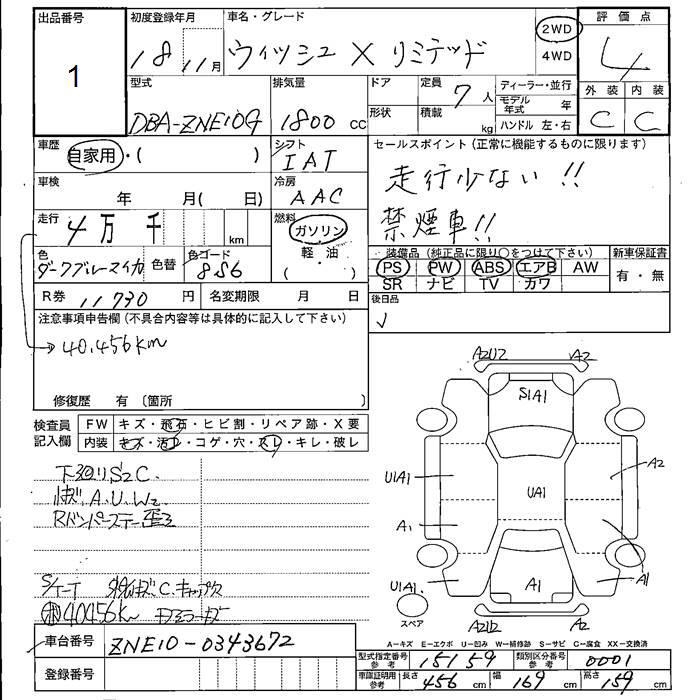 出品番号
1
初度登録年月
18 11月
車名・グレード
ウィッシュ X リミテッド
2WD
4WD
評価点
4
型式
DBA-ZNE10G
排気量
1800 cc
ドア
形状
定員
7人
積載
kg
ディーラー・並行
モデル年式 年
ハンドル 左・右
外装 内装
C C
車歴
自家用・( )
シフト
IAT
セールスポイント(正常に機能するものに限ります)
走行少ない!!
禁煙車!!
車検
年 月( 日)
冷房
AAC
走行
4万 千 km
燃料
ガソリン
軽・油
( )
色
ダークブルーマイカ
色替
色コード
8S6
装備品(純正品に限り○をつけて下さい)
PS PW ABS エアB AW
SR ナビ TV カワ
新車保証書
有・無
R券 11730 円
名変期限 月 日
後日品
注意事項申告欄(不具合内容等は具体的に記入して下さい)
→40,456km
修復歴 有〔箇所 〕
検査員記入欄
FW キズ・飛石・ヒビ割・リペア跡・X要
内装 キズ・汚れ・コゲ・穴・スレ・キレ・破レ
下廻りS2C.
A.U.W2
Rバンパーステー歪3
40456km
A2U2 A2
S1A1
U1A1 A2
UA1
A1
U1A1 A1
A1
スペア
A2U2 A2
A-キズ E-エクボ U-凹み W-補修跡 S-サビ C-腐食 XX-交換済
車台番号
ZNE10-0343672
登録番号
型式指定番号参考 15159
類別区分番号参考 0001
車庫証明用参考 長さ 456 cm 幅 169 cm 高さ 159 cm